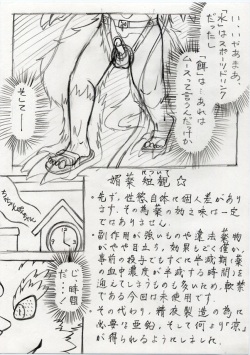 いいがあまぁ、
「水」はスポーツドリンク
だったし
「餌」は…あれは
ムースってやつなんだっけか
そして―
媚薬 短観☆
について
・先ず、性感自体に個人差があり
ます。その為薬の効き味は一定
ではありません。
・副作用が強いものや違法薬物
がやや目立ち、効果もごく僅か、
事前の投与でもすぐに半減期(薬
の血中濃度が半減する時間)を
通してしまうものも多いため、献禁
である今回は未使用です。
・その代わり、精液製造の為に
必要な亜鉛、そして何より「涼」
が得られるようにしました。
じ…時間
だ…！